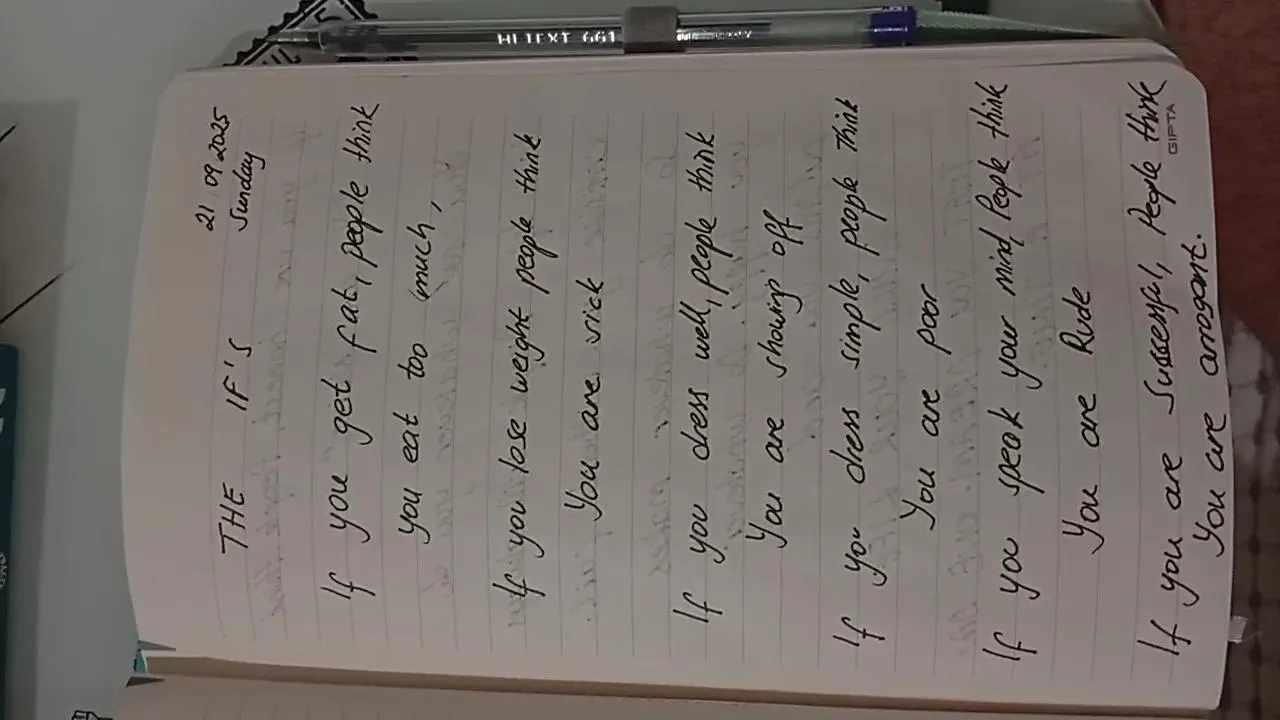 HI-TEXT 661
21 09 2025
Sunday
THE IF'S
If you get fat, people think
you eat too much,
If you lose weight people think
You are sick
If you dress well, people think
You are showing off
If you dress simple, people think
You are poor
If you speak your mind, People think
You are Rude
If you are Sussessful, People think
You are arrogant.
GIPTA